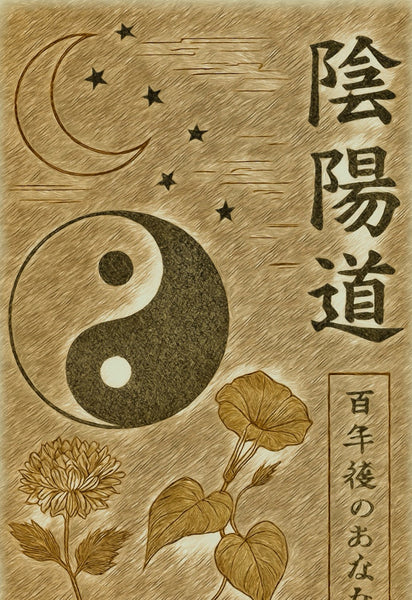 陰陽道
百年後のあな